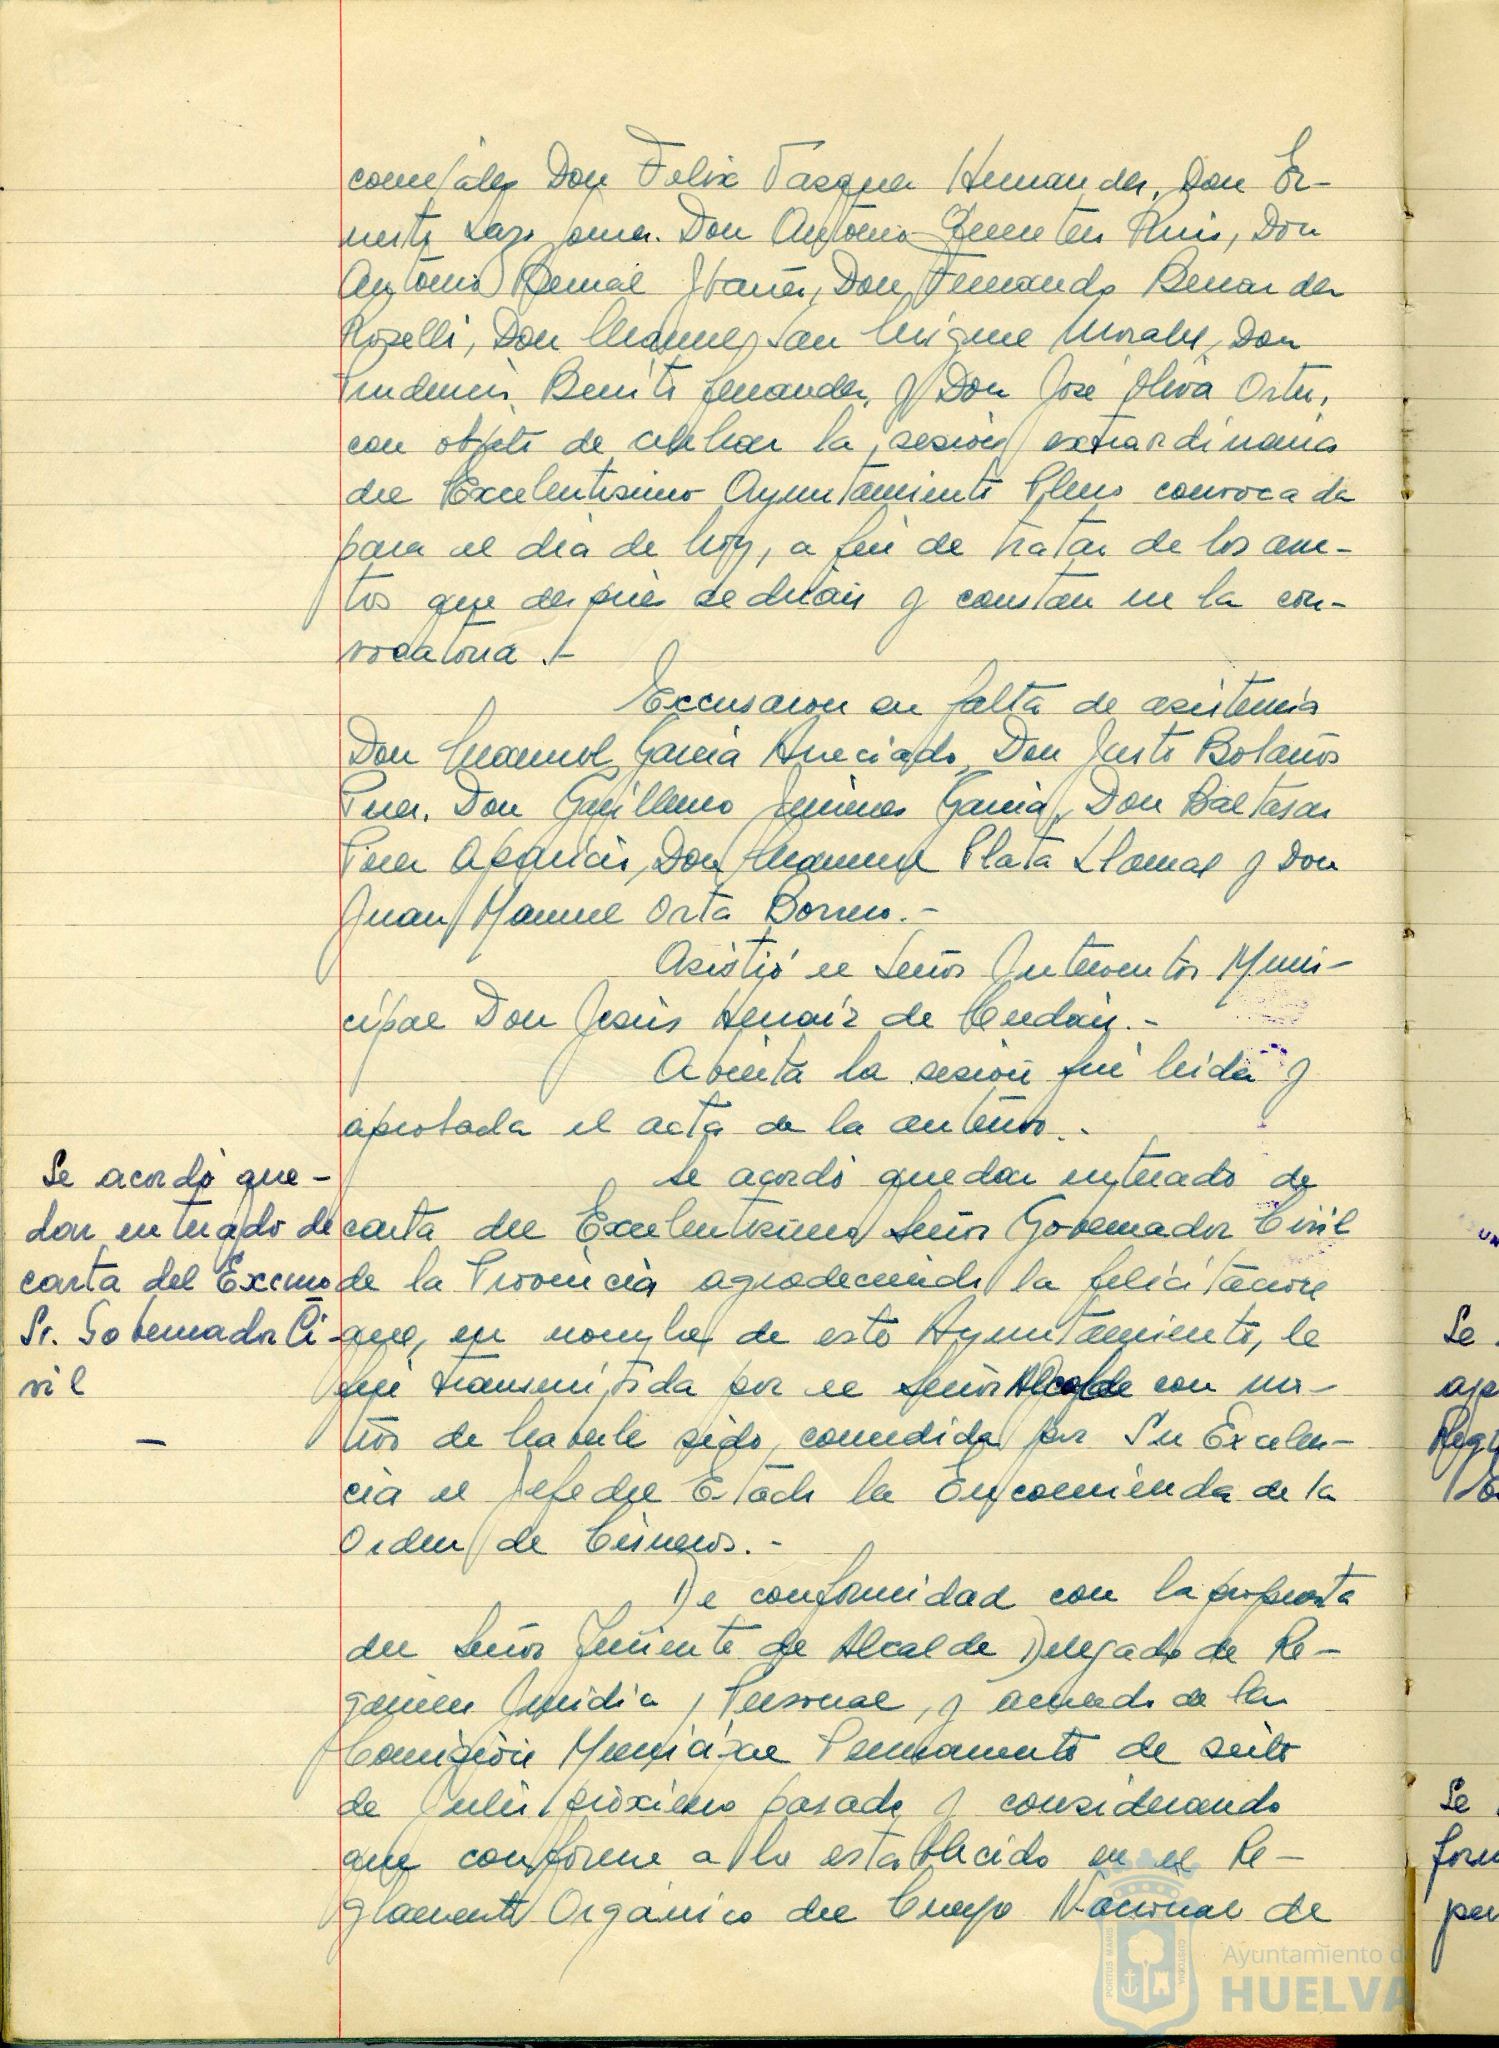 concejales Don Felix Vazquez Hernandez, Don Er-
nesto Lazo Don Antonio Ruiz, Don
Antonio Bernal Ibañez, Don Fernando Bernardez
Roselli, Don Manuel San Miguel Morales, Don
Prudencio Benito Fernandez, y Don José Oliva Ortiz,
con objeto de celebrar la sesión extraordinaria
del Excelentisimo Ayuntamiento Pleno convocada
para el dia de hoy, a fin de tratar de los asun-
tos que despues se dirán y constan en la con-
vocatoria.-
Excusaron su falta de asistencia
Don Manuel Garcia Don Justo Bolaños
Perez, Don Guillermo Jimenez Garcia, Don Baltasar
Perez Aparicio, Don Manuel Plata Llamas y Don
Juan Manuel Orta Borrero.-
Asistió el Señor Interventor Muni-
cipal Don Jesús de Cerdán.-
Abierta la sesión fué leida y
aprobada el acta de la anterior.-
Se acordó quedar enterado de
carta del Excelentisimo Señor Gobernador Civil
de la Provincia agradeciendo la felicitacion
que, en nombre de este Ayuntamiento, le
fué transmitida por el Señor Alcalde con mo-
tivo de haberle sido concedida por Su Excelen-
cia el Jefe del Estado la Encomienda de la
Orden de Cisneros.-
De conformidad con la propuesta
del Señor Teniente de Alcalde Delegado de Re-
gimen Juridico y Personal, y acuerdo de la
Comisión Municipal Permanente de seis
de Julio próximo pasado y considerando
que conforme a lo establecido en el Re-
glamento Orgánico del Cuerpo Nacional de
Se acordó que-
dar enterado de
carta del Excmo
Sr. Gobernador Ci-
vil
-
Se
Se
Ayuntamiento d
HUELVA